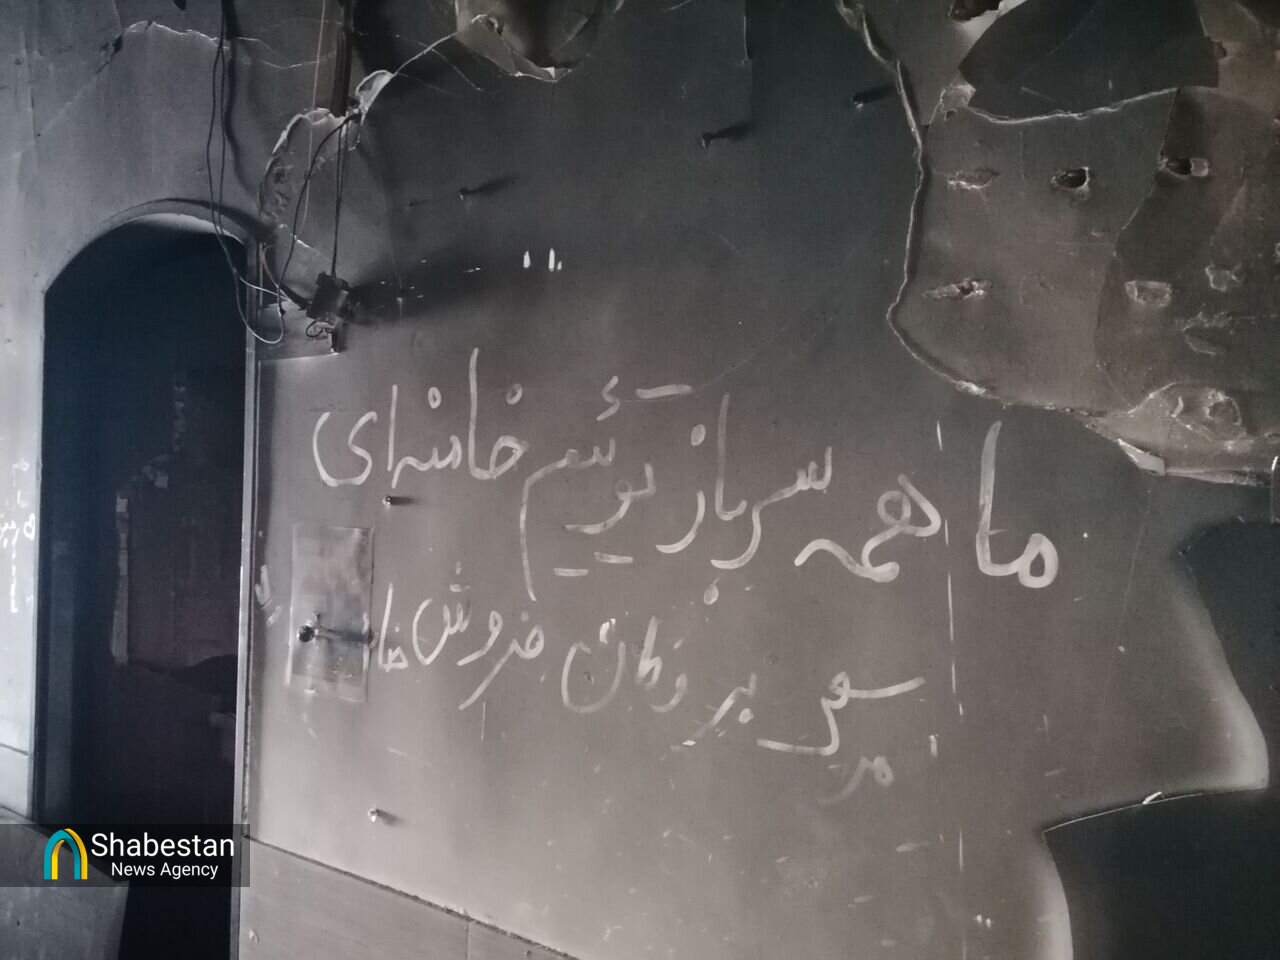 ما همه سرباز توئیم خامنه ای
مرگ بر وطن فروش
Shabestan
News Agency